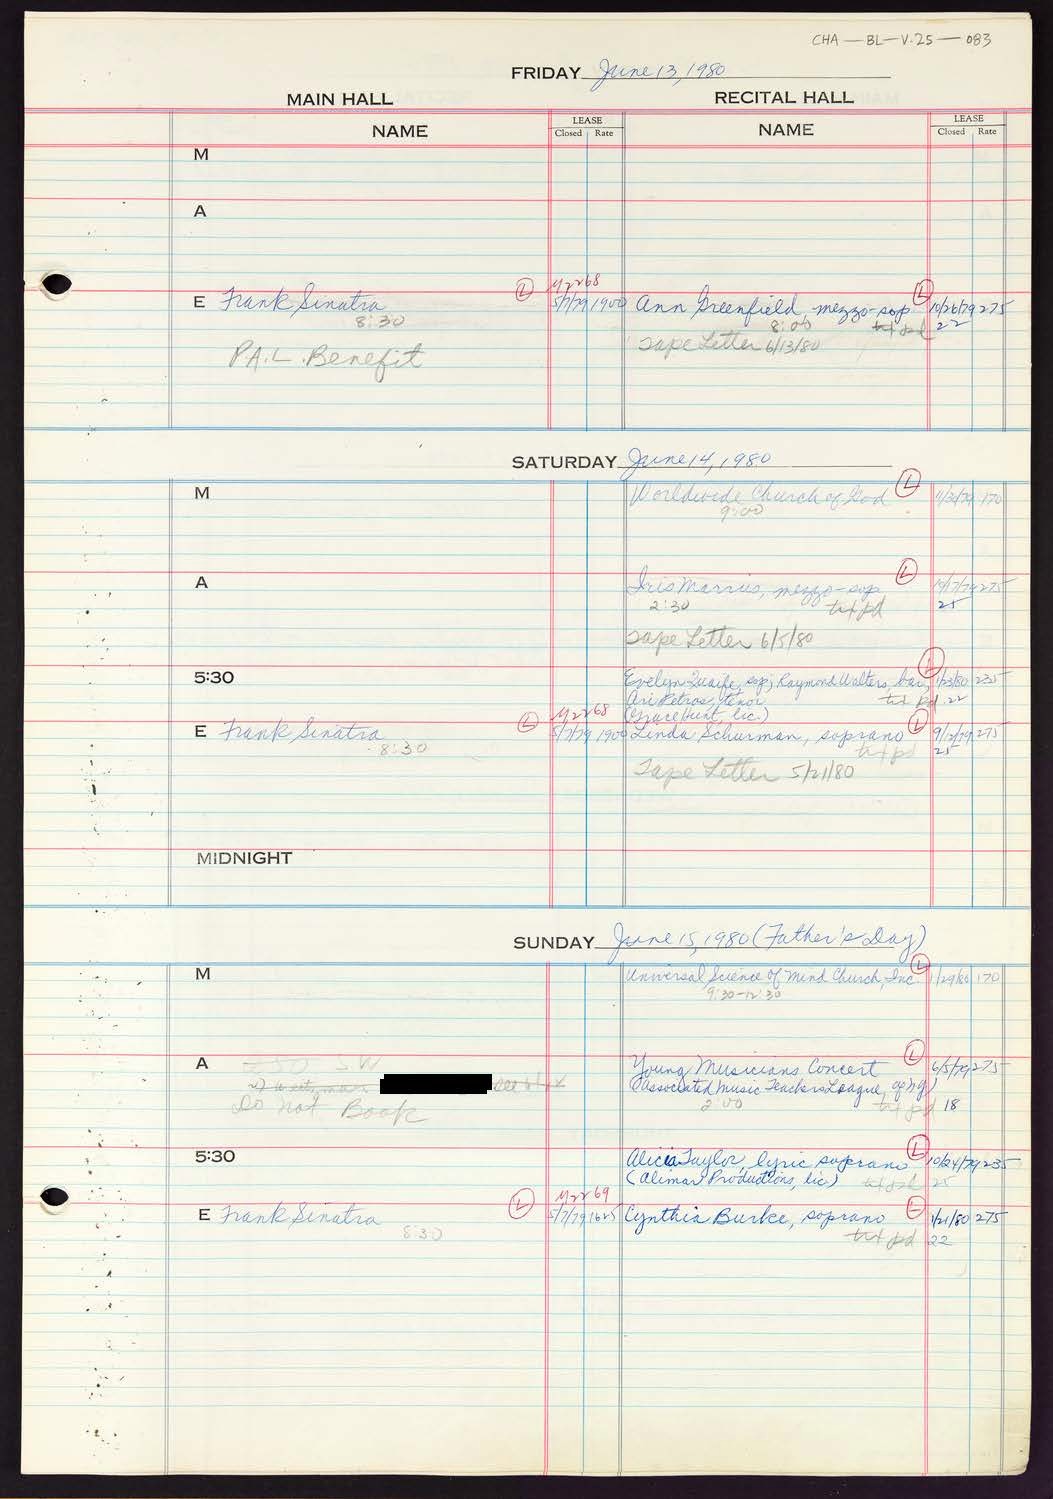 CHA — BL — V.25 — 083
FRIDAY June 13, 1980
MAIN HALL
RECITAL HALL
NAME
LEASE
Closed Rate
NAME
LEASE
Closed Rate
M
A
E Frank Sinatra L M2268 5/7/79 1900
8:30
P.A.L. Benefit
Ann Greenfield, mezzo-sop L 10/26/79 275
8:00 txt pd 22
Tape Letter 6/13/80
SATURDAY June 14, 1980
M
Worldwide Church of God L 170
9:00
A
Iris mezzo-sop L 275
2:30 txt pd 25
Tape Letter 6/5/80
5:30
Evelyn Quaife, sop; Raymond Walters, bar, L 1/23/80 235
Ari Petros, tenor txt pd 22
(Grace Hunt, lic.)
E Frank Sinatra L M2268 5/7/79 1900
8:30
Linda Schurman, soprano L 9/12/79 275
txt pd 25
Tape Letter 5/21/80
MIDNIGHT
SUNDAY June 15, 1980 (Father's Day)
M
Universal Science of Mind Church, Inc. L 1/29/80 170
9:30-12:30
A
Do Not Book
Young Musicians Concert L 6/5/79 275
(Associated Music Teachers League, of NY)
2:00 txt pd 18
5:30
Alicia Taylor, lyric soprano L 10/24/79 235
(Alimar Productions, lic) 25
E Frank Sinatra L M2269 5/7/79 1625
8:30
Cynthia Burke, soprano L 1/21/80 275
txt pd 22